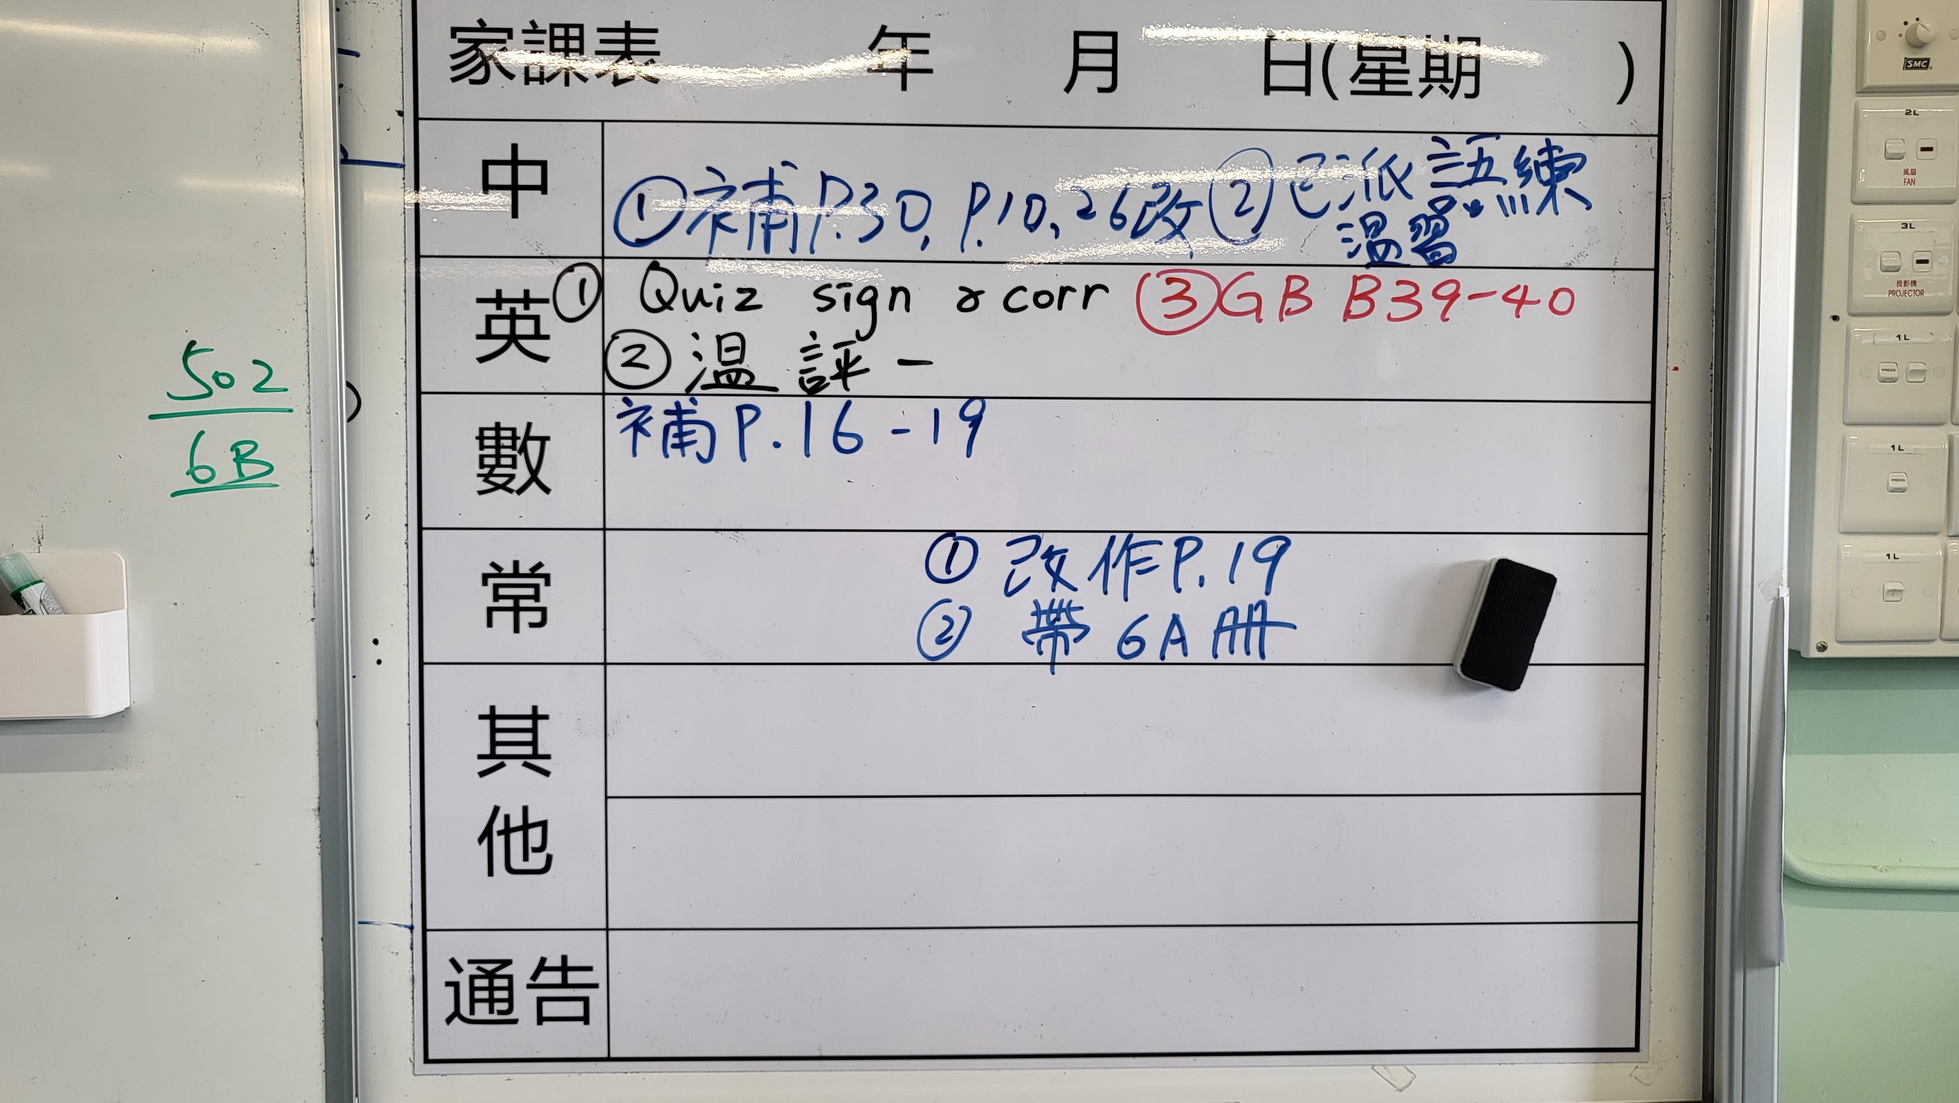 家課表 年 月 日(星期 )
中
①補P.30, P.10, 26改 ②已派語練
溫習
英
① Quiz sign & corr ③GB B39-40
②溫 評一
數
補P.16-19
常
① 改作P.19
② 帶 6A 冊
其他
通告
502
6B
SMC
2L
風扇
FAN
3L
投影機
PROJECTOR
1L
PRESS
1L
PRESS
1L